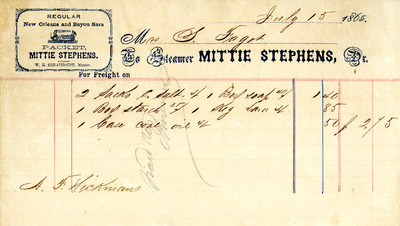 REGULAR
New Orleans and Bayou Sara
PACKET,
MITTIE STEPHENS.
W. B. GREATHOUSE, Master.
July 15 1865.
Mrs S. Fagot
To Steamer MITTIE STEPHENS, Dr.
For Freight on
2 Sacks C. Salt 1 Box soap 1 40
1 Box starch 1 Keg 85
1 Case coal oil 50 $ 2 75
A. F. Hickmans